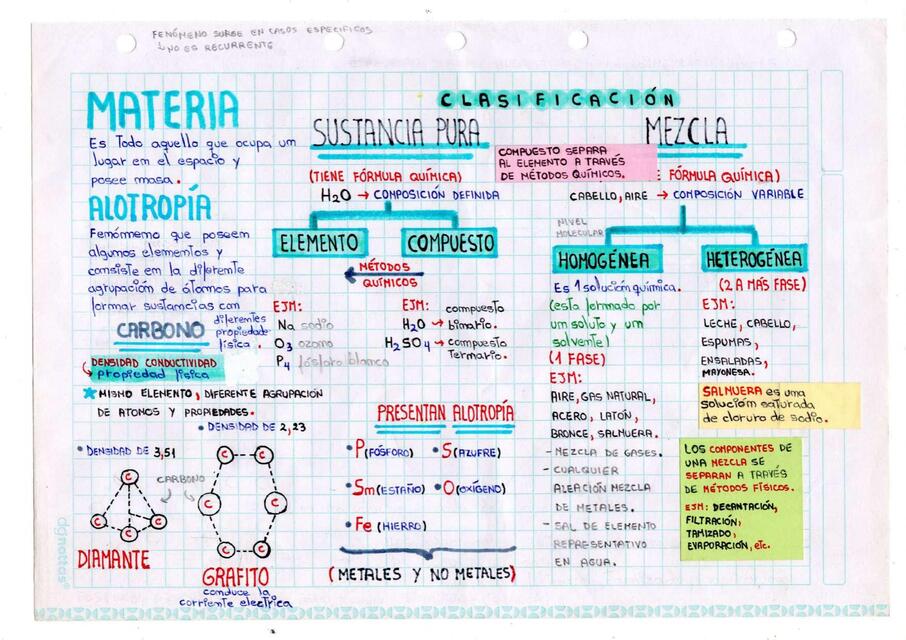 FENÓMENO SURGE EN CASOS ESPECÍFICOS
↳ NO ES RECURRENTE
CLASIFICACIÓN
MATERIA
Es Todo aquello que ocupa un
lugar em el espacio y
posee masa.
ALOTROPÍA
Fenómemo que poseem
algumos elememtos y
comsiste em la diferemte
agrupación de átomos para
formar sustamcias com
diferemtes
propiedade
física.
CARBONO
DENSIDAD CONDUCTIVIDAD
propiedad física
* MISMO ELEMENTO, DIFERENTE AGRUPACIÓN
DE ATONOS Y PROPIEDADES.
• DENSIDAD DE 2,23
• DENSIDAD DE 3,51
CARBONO
C
C
C
C
DIAMANTE
C
C
C
C
C
C
GRAFITO
conduce la
corriente electrica
SUSTANCIA PURA
(TIENE FÓRMULA QUÍMICA)
H2O → COMPOSICIÓN DEFINIDA
ELEMENTO
COMPUESTO
MÉTODOS
QUÍMICOS
EJM:
Na sodio
O3 ozono
P4 fósforo blanco
EJM:
H2O → compuesto
bimario.
H2SO4 → compuesto
Termario.
PRESENTAN ALOTROPÍA
• P (FÓSFORO) • S (AZUFRE)
• Sm (ESTAÑO) • O (OXÍGENO)
• Fe (HIERRO)
(METALES Y NO METALES)
COMPUESTO SEPARA
AL ELEMENTO A TRAVÉS
DE MÉTODOS QUÍMICOS.
MEZCLA
: FÓRMULA QUÍMICA)
CABELLO, AIRE → COMPOSICIÓN VARIABLE
NIVEL
MOLECULAR
HOMOGÉNEA
Es 1 solución química.
(esta formado por
um soluto y um
solvente)
(1 FASE)
EJM:
AIRE, GAS NATURAL,
ACERO, LATÓN,
BRONCE, SALMUERA.
- MEZCLA DE GASES.
- CUALQUIER
ALEACIÓN MEZCLA
DE METALES.
- SAL DE ELEMENTO
REPRESENTATIVO
EN AGUA.
HETEROGÉNEA
(2 A MÁS FASE)
EJM:
LECHE, CABELLO,
ESPUMAS,
ENSALADAS,
MAYONESA.
SALMUERA es una
solución saturada
de cloruro de sodio.
LOS COMPONENTES DE
UNA MEZCLA SE
SEPARAN A TRAVÉS
DE MÉTODOS FÍSICOS.
EJM: DECANTACIÓN,
FILTRACIÓN,
TAMIZADO,
EVAPORACIÓN, etc.
dgnottas